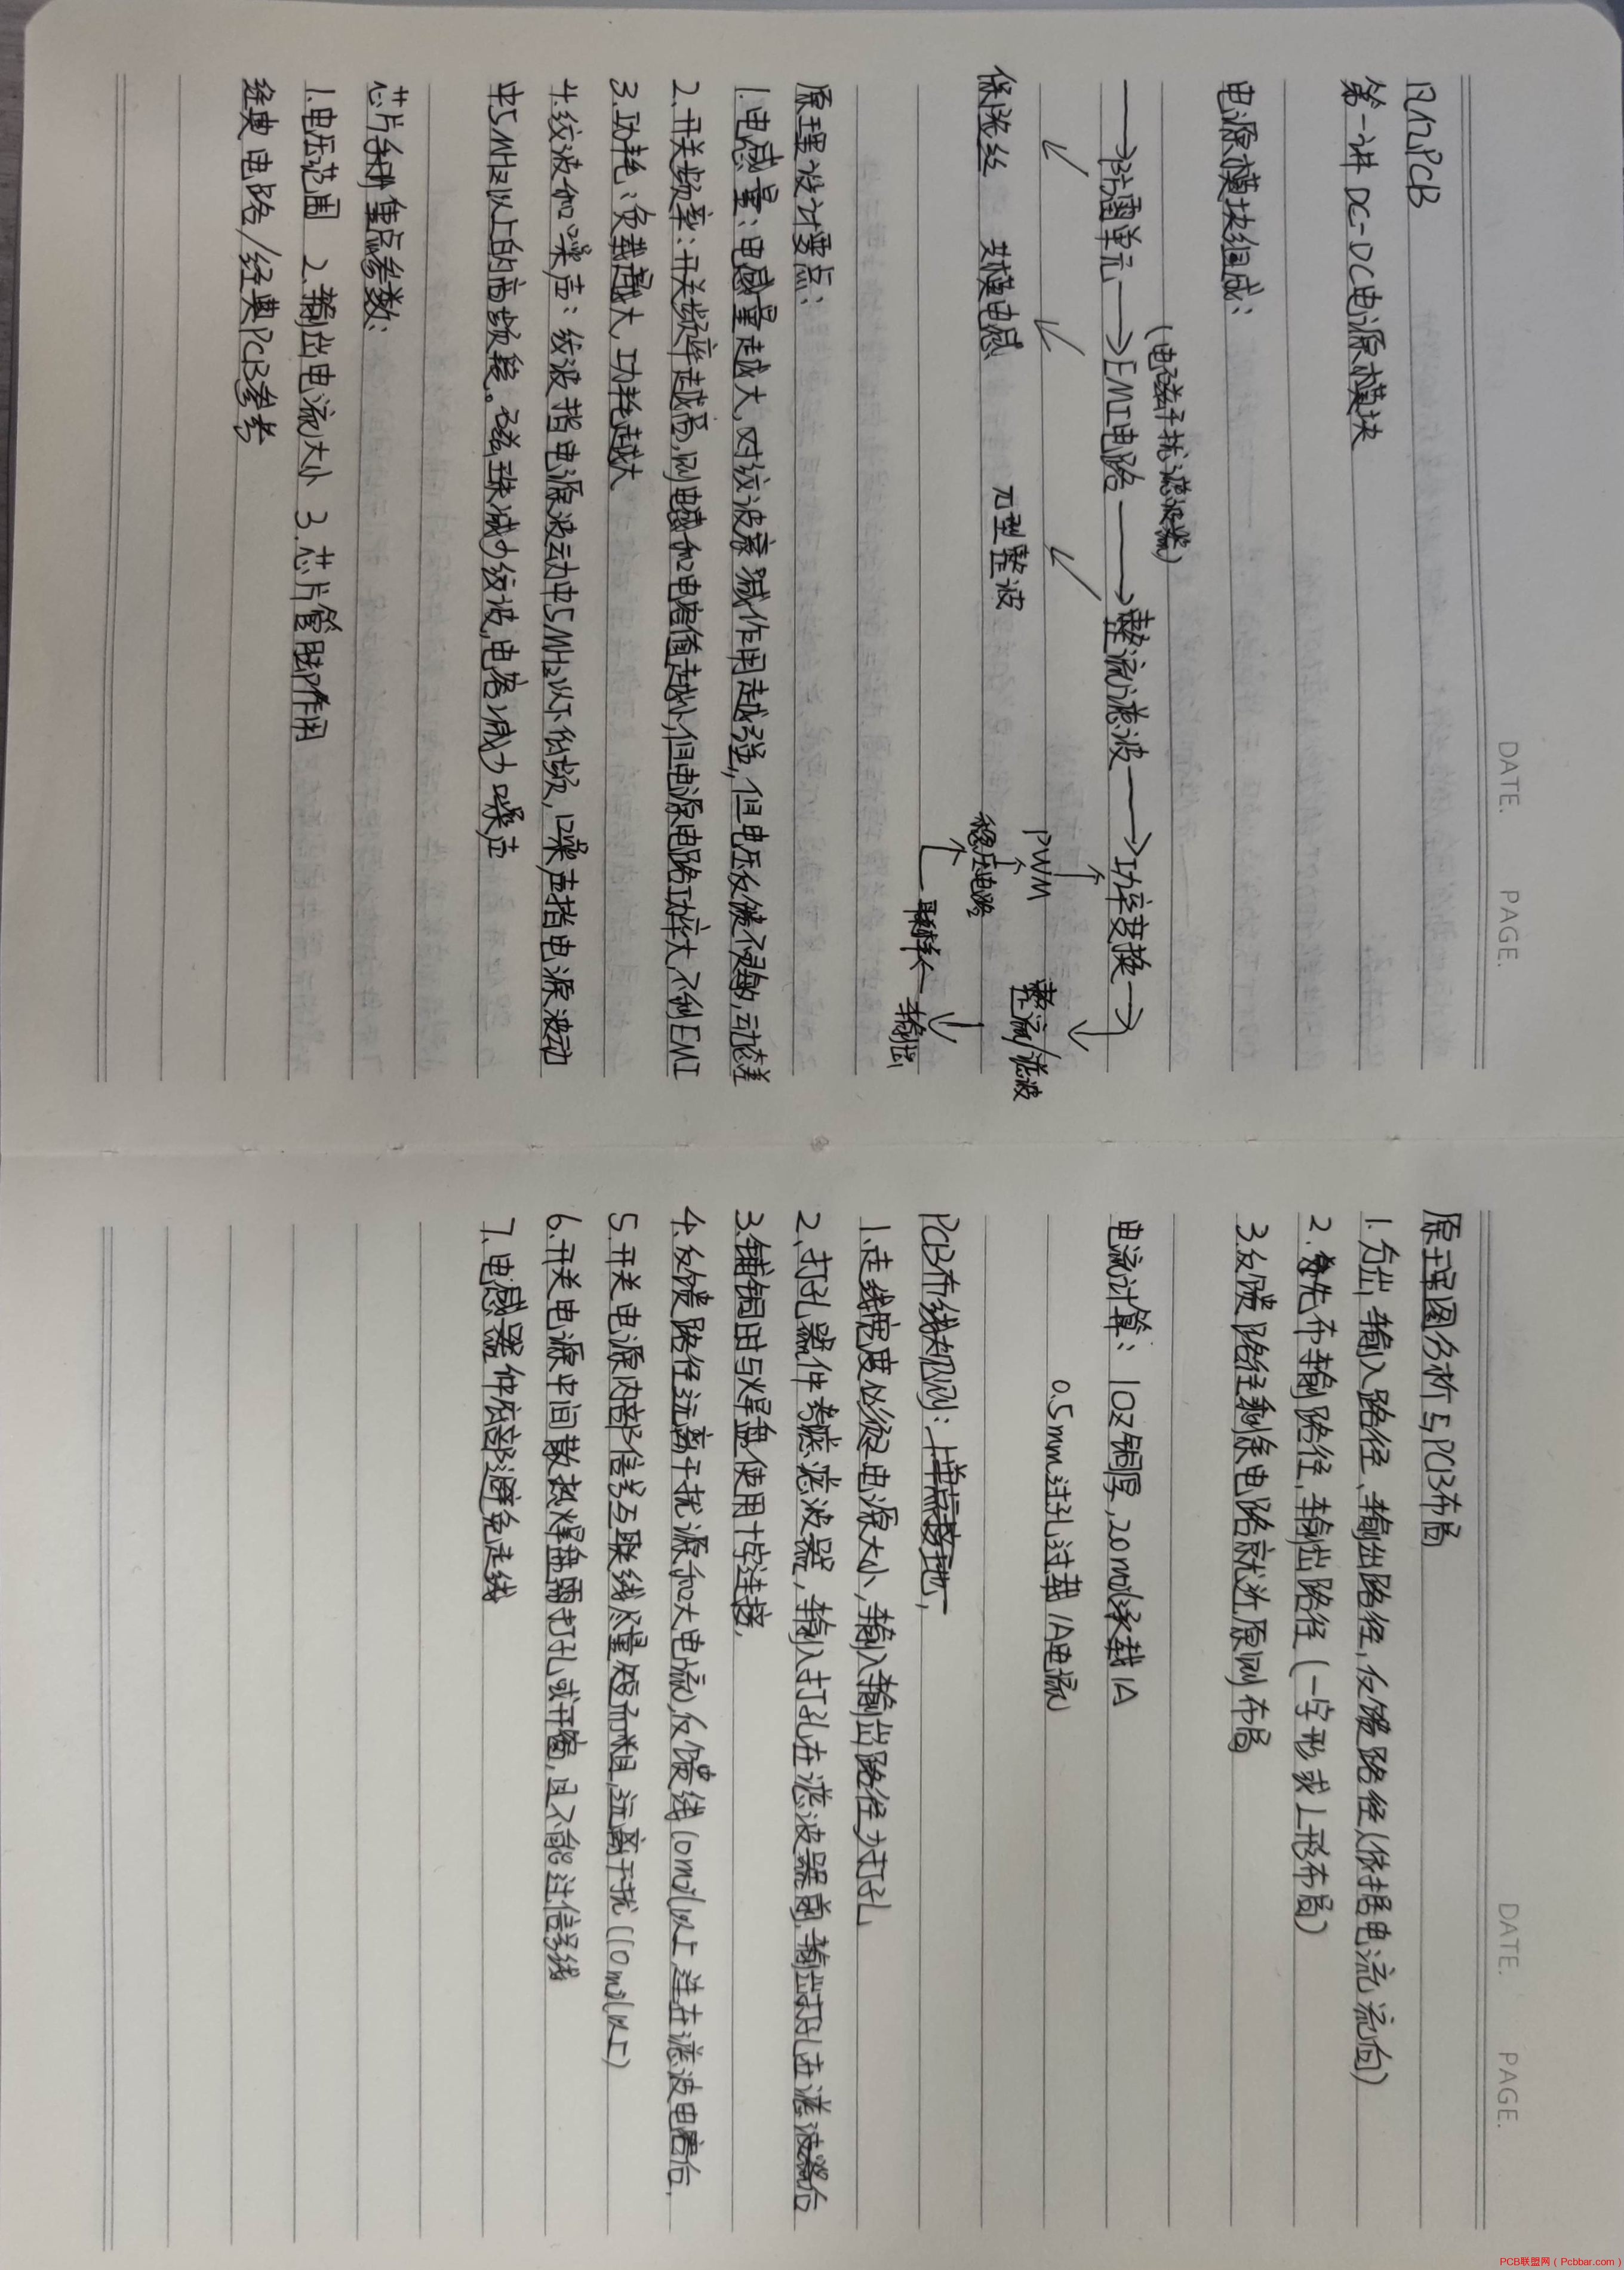 DATE.    PAGE.
凡亿PCB
第一讲 DC-DC电源模块
电源模块组成：
(电磁干扰滤波器)
→防雷单元→EMI电路→整流滤波→功率变换→
保险丝 共模电感 π型整波 PWM 整流/滤波
稳压电路
取样←输出
原理设计要点：
1. 电感量：电感量越大，对纹波衰减作用越强，但电压反馈不灵敏，动态差
2. 开关频率：开关频率越高，则电感和电容值越小，但电源电路功率大，不利EMI
3. 功耗：负载越大，功耗越大
4. 纹波和噪声：纹波指电源波动中5MHz以下低频，噪声指电源波动
中5MHz以上的高频段。磁珠减少纹波，电容减少噪声
芯片手册重点参数：
1. 电压范围 2. 输出电流大小 3. 芯片管脚作用
经典电路/经典PCB参考
DATE.    PAGE.
原理图分析与PCB布局
1. 分出输入路径、输出路径，反馈路径(依据电流流向)
2. 先布输入路径，输出路径(一字形或L形布局)
3. 反馈路径剩余电路就近原则布局
电流计算：1OZ铜厚，20mil承载1A
0.5mm过孔过载1A电流
PCB布线规则：1.单点接地，
1. 走线宽度必须≥电源大小，输入输出路径少打孔
2. 打孔器件考虑滤波器，输入打孔在滤波器前，输出打孔在滤波器后
3. 铺铜由与焊盘使用十字连接，
4. 反馈路径远离干扰源和大电流，反馈线10mil以上，连在滤波电容后，
5. 开关电源内部信号互联线尽量短而粗，远离干扰(10mil以上)
6. 开关电源中间散热焊盘需打孔或开窗，且不能过信号线
7. 电感器件底部避免走线
PCB联盟网（Pcbbar.com）